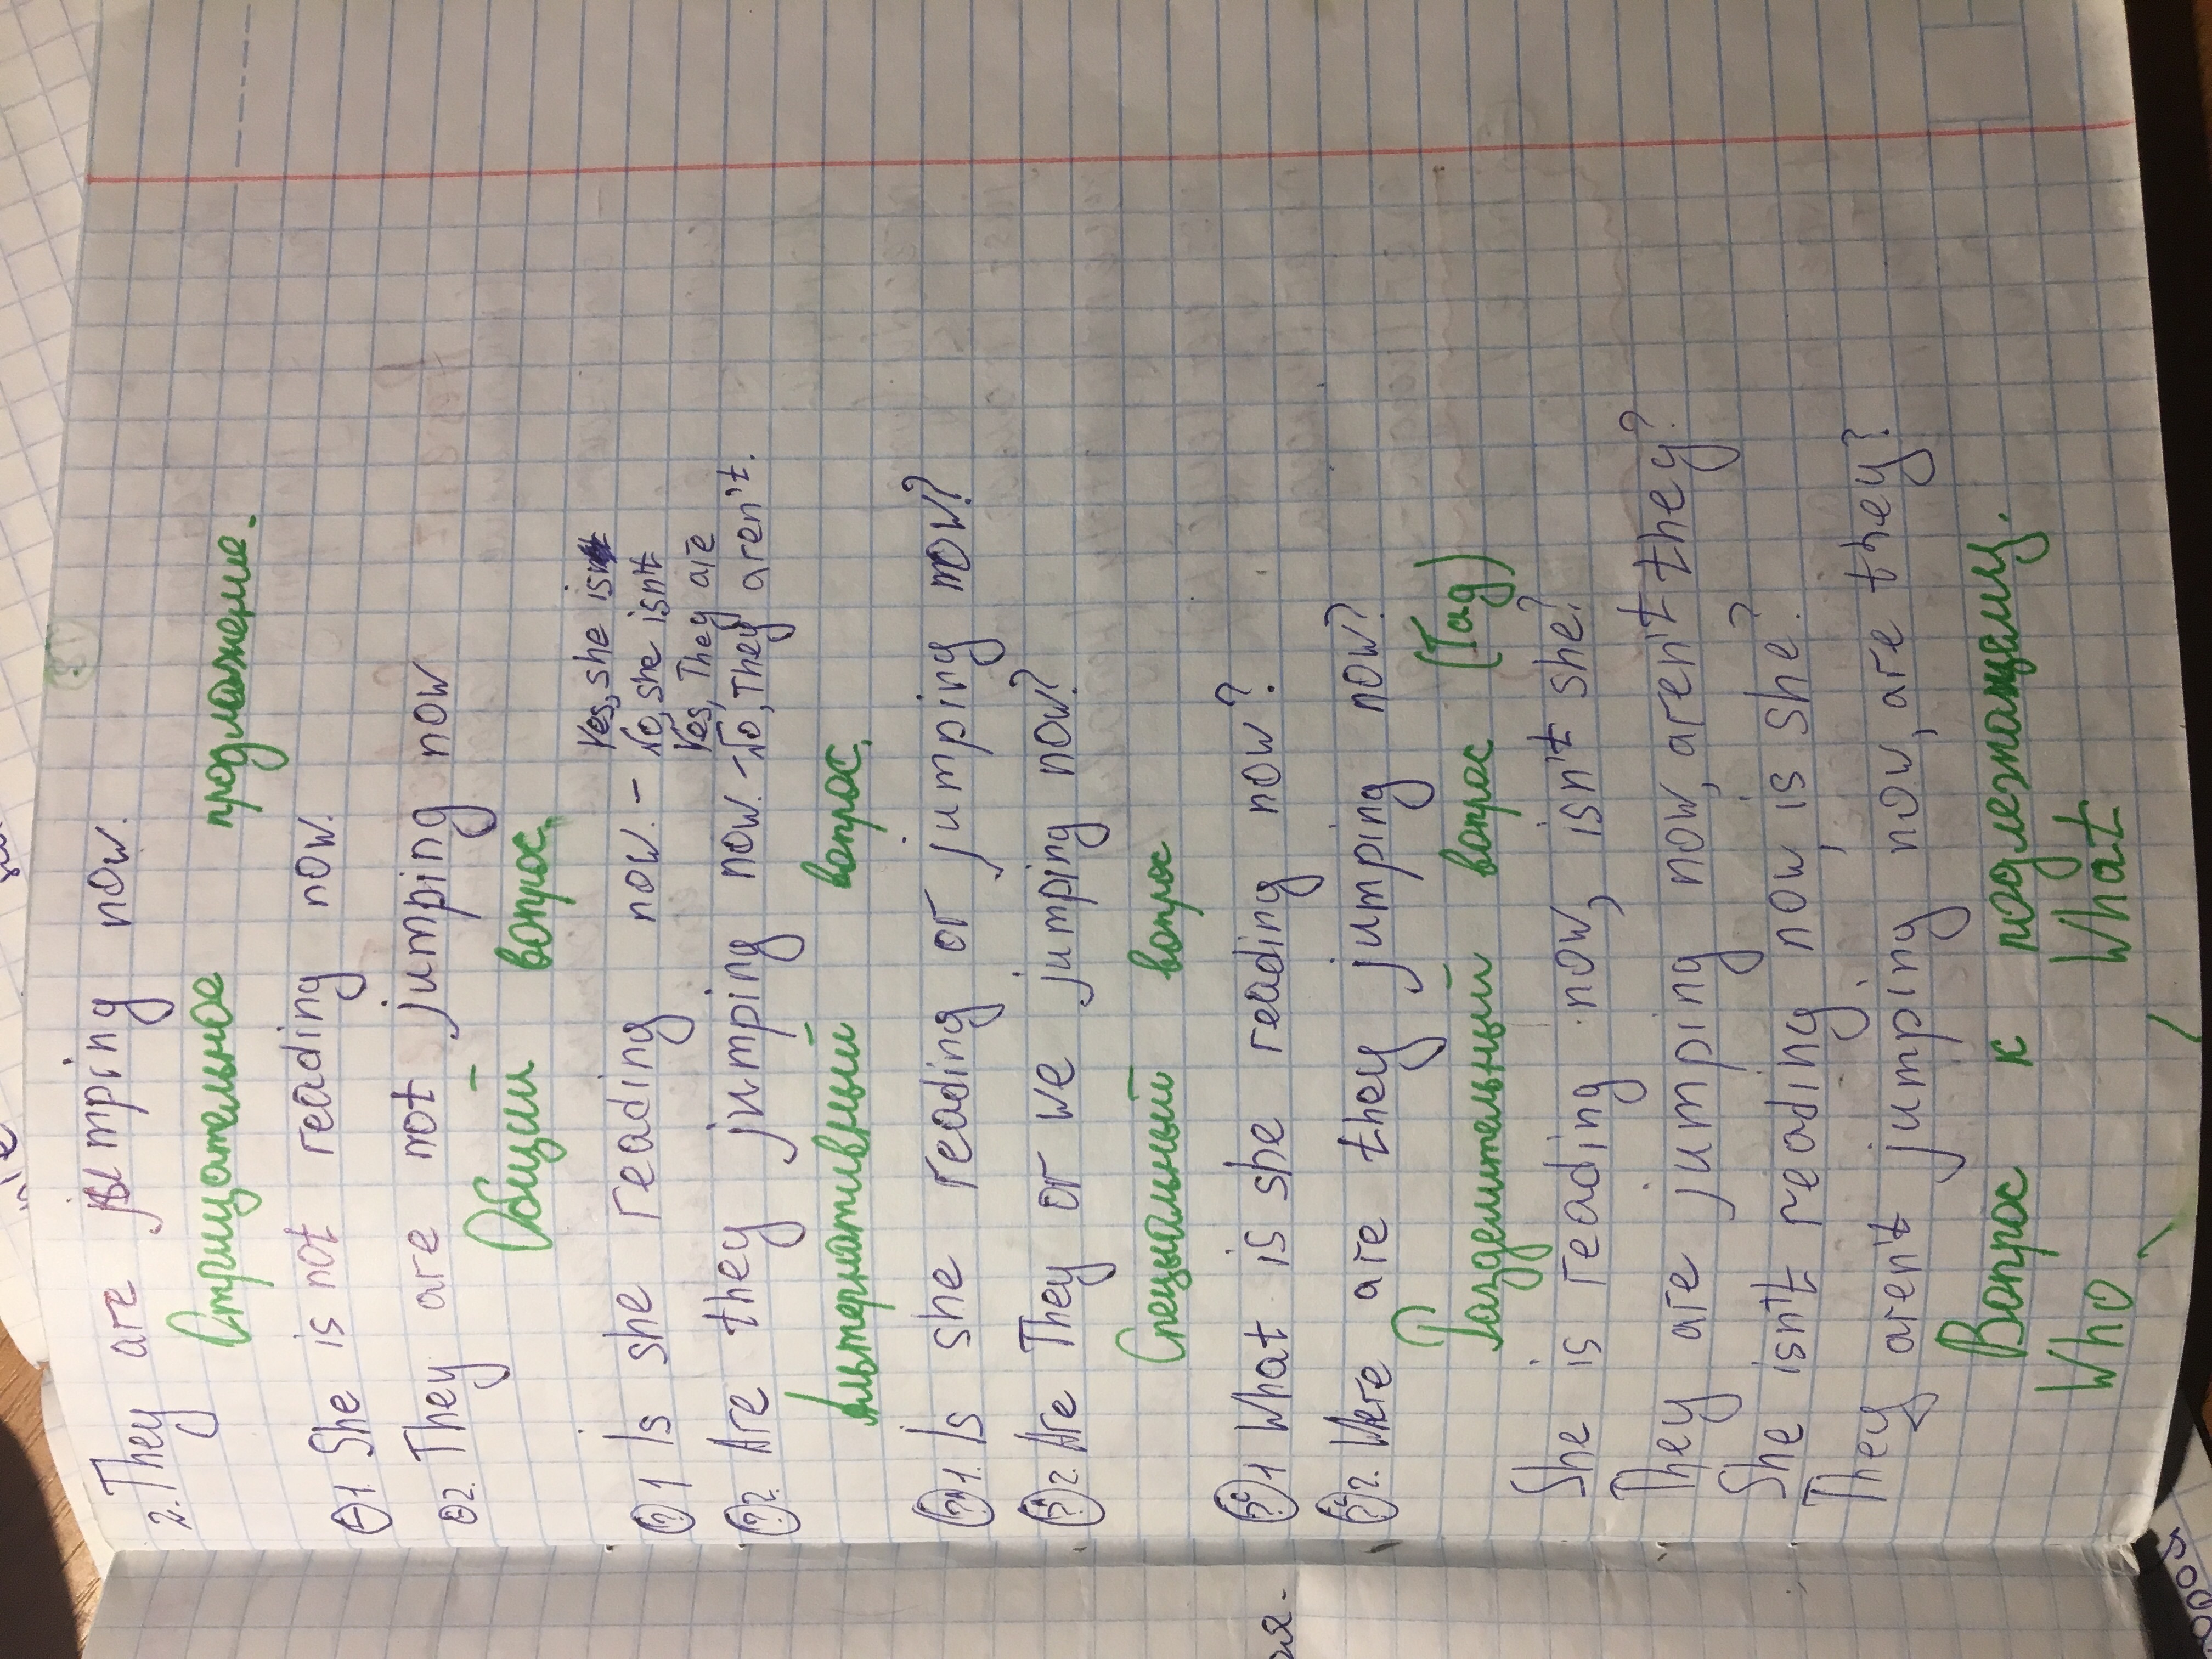 2. They are jumping now.
Отрицательное предложение.
⊖1. She is not reading now.
⊖2. They are not jumping now
Общий вопрос.
Yes, she is
?1 Is she reading now. - No, she isn't
Yes, They are
?2. Are they jumping now. - No, They aren't.
Альтернативный вопрос.
?1. Is she reading or jumping now?
?2. Are They or we jumping now?
Специальный вопрос
?1 What is she reading now?
?2. Were are they jumping now?
Разделительный вопрос (Tag)
She is reading now, isn't she?
They are jumping now, aren't they?
She isn't reading now, is she?
They aren't jumping now, are they?
Вопрос к подлежащему.
Who What